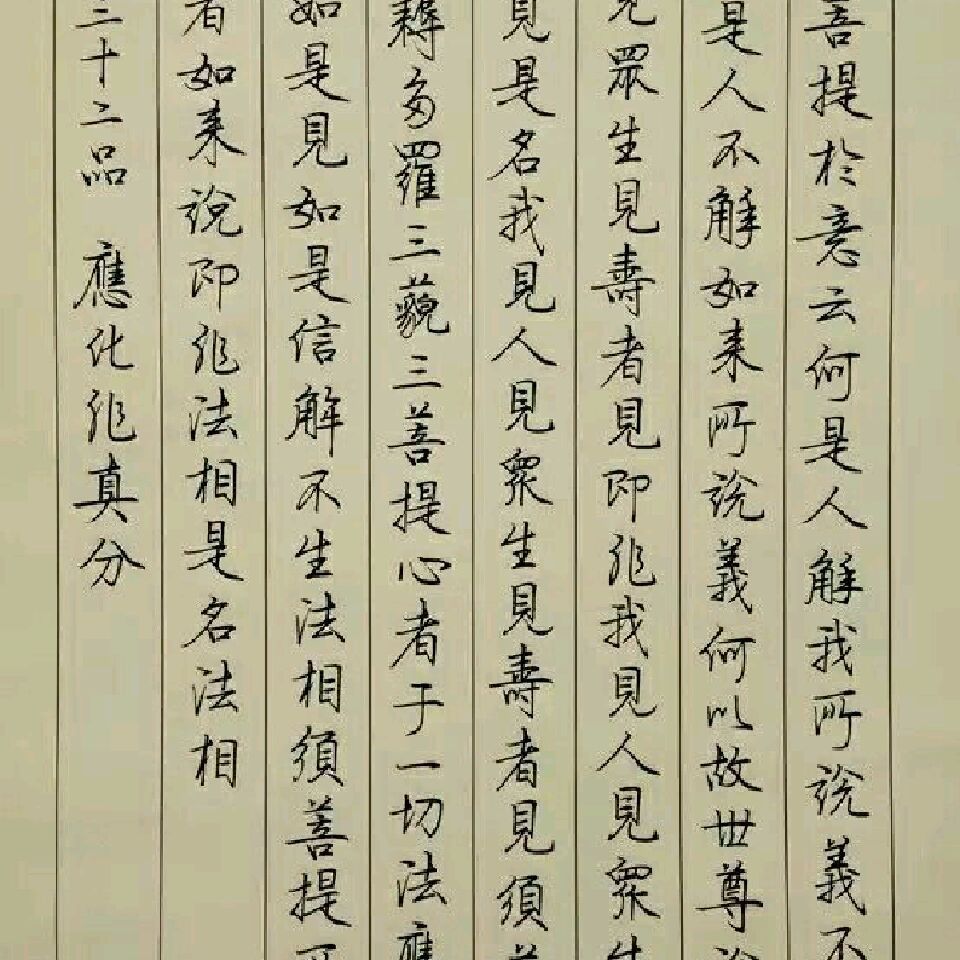 菩提於意云何是人解我所説義不
是人不解如来所説義何以故世尊説
見眾生見壽者見即非我見人見眾生
見是名我見人見眾生見壽者見須菩
耨多羅三藐三菩提心者于一切法應
如是見如是信解不生法相須菩提所
者如来説即非法相是名法相
三十二品 應化非真分